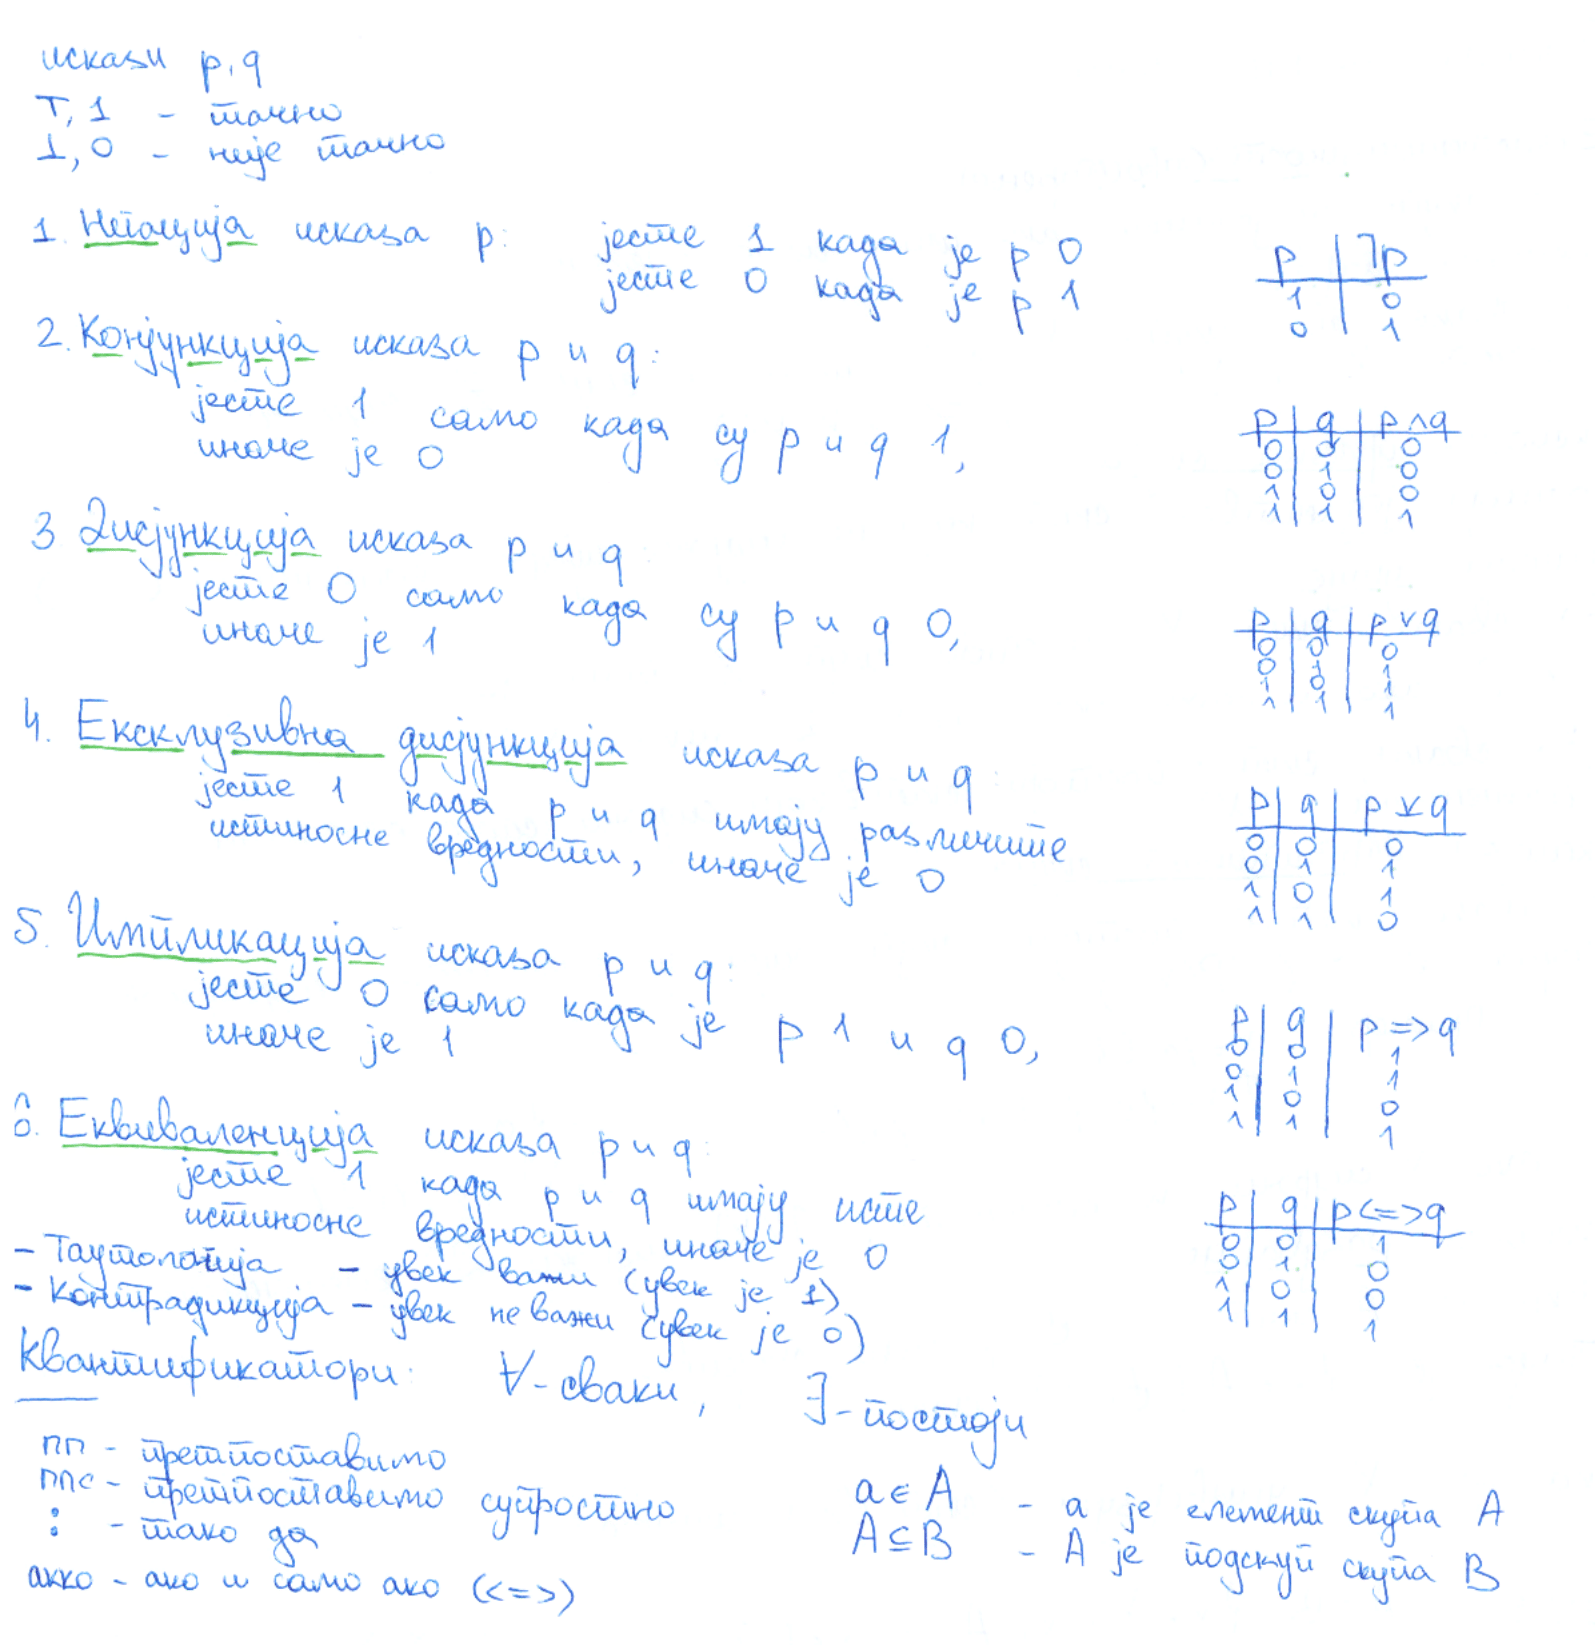 искази p, q
T, 1 - тачно
⊥, 0 - није тачно
1. Негација исказа p: јесте 1 када је p 0
јесте 0 када је p 1
p | ¬p
1 | 0
0 | 1
2. Конјункција исказа p и q:
јесте 1 само када су p и q 1,
иначе је 0
p | q | p ∧ q
0 | 0 | 0
0 | 1 | 0
1 | 0 | 0
1 | 1 | 1
3 Дисјункција исказа p и q
јесте 0 само када су p и q 0,
иначе је 1
p | q | p ∨ q
0 | 0 | 0
0 | 1 | 1
1 | 0 | 1
1 | 1 | 1
4. Ексклузивна дисјункција исказа p и q:
јесте 1 када p и q имају различите
истиносне вредности, иначе је 0
p | q | p ⊻ q
0 | 0 | 0
0 | 1 | 1
1 | 0 | 1
1 | 1 | 0
5. Импликација исказа p и q:
јесте 0 само када је p 1 и q 0,
иначе је 1
p | q | p => q
0 | 0 | 1
0 | 1 | 1
1 | 0 | 0
1 | 1 | 1
6. Еквиваленција исказа p и q:
јесте 1 када p и q имају исте
истиносне вредности, иначе је 0
p | q | p <=> q
0 | 0 | 1
0 | 1 | 0
1 | 0 | 0
1 | 1 | 1
- Таутологија - увек важи (увек је 1)
- Контрадикција - увек не важи (увек је 0)
Квантификатори: ∀ - сваки, ∃ - постоји
пп - претпоставимо
ппс - претпоставимо супростно
: - тако да
акко - ако и само ако (<=>)
a ∈ A - a је елемент скупа A
A ⊆ B - A је подскуп скупа B